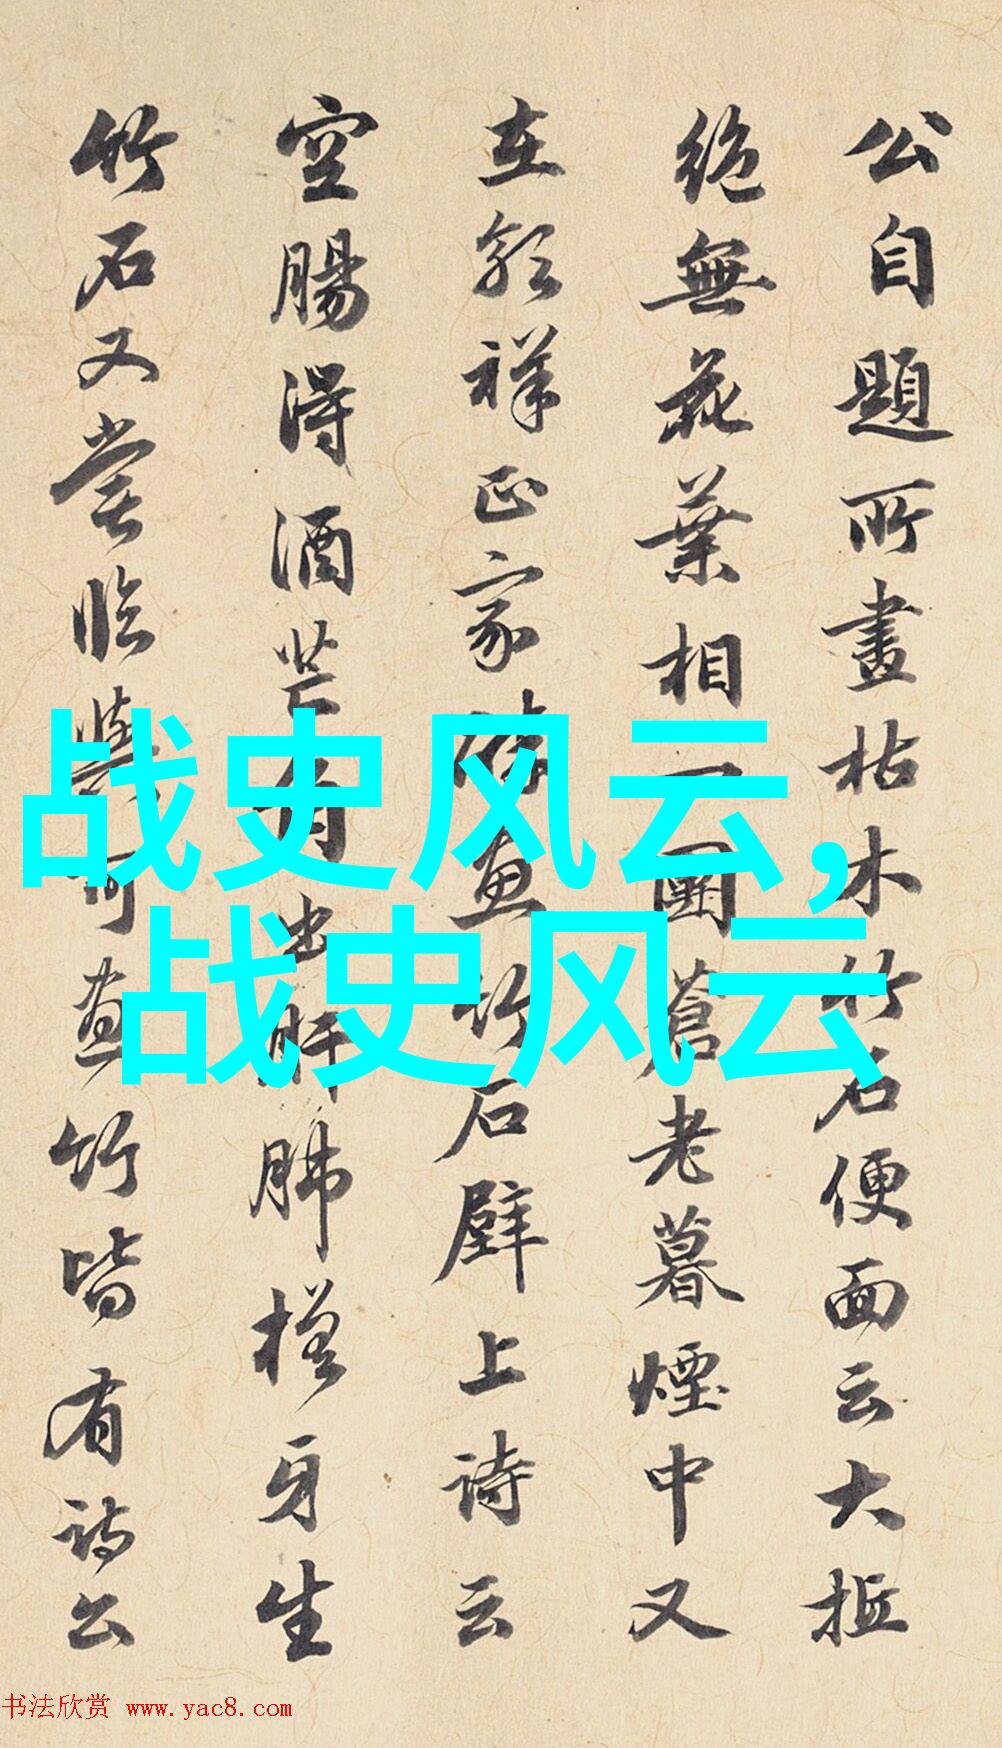 公自題所畫枯木竹石便面云大抵
絶無花葉相一團蒼老暮煙中又
在郭祥正家畫竹石壁上詩云
空腸得酒芒角出肝肺槎牙生
竹石又嘗臨與可畫竹皆有詩公
战史风云,
战史风云
书法欣赏 www.yac8.com